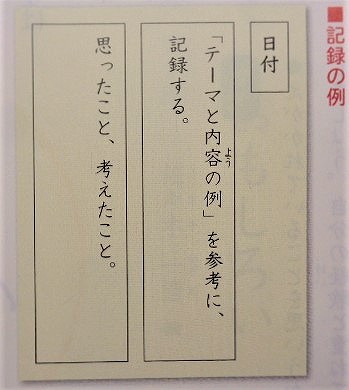 ■記録の例
日付
「テーマと内容の例」を参考に、
よう
記録する。
思ったこと、考えたこと。